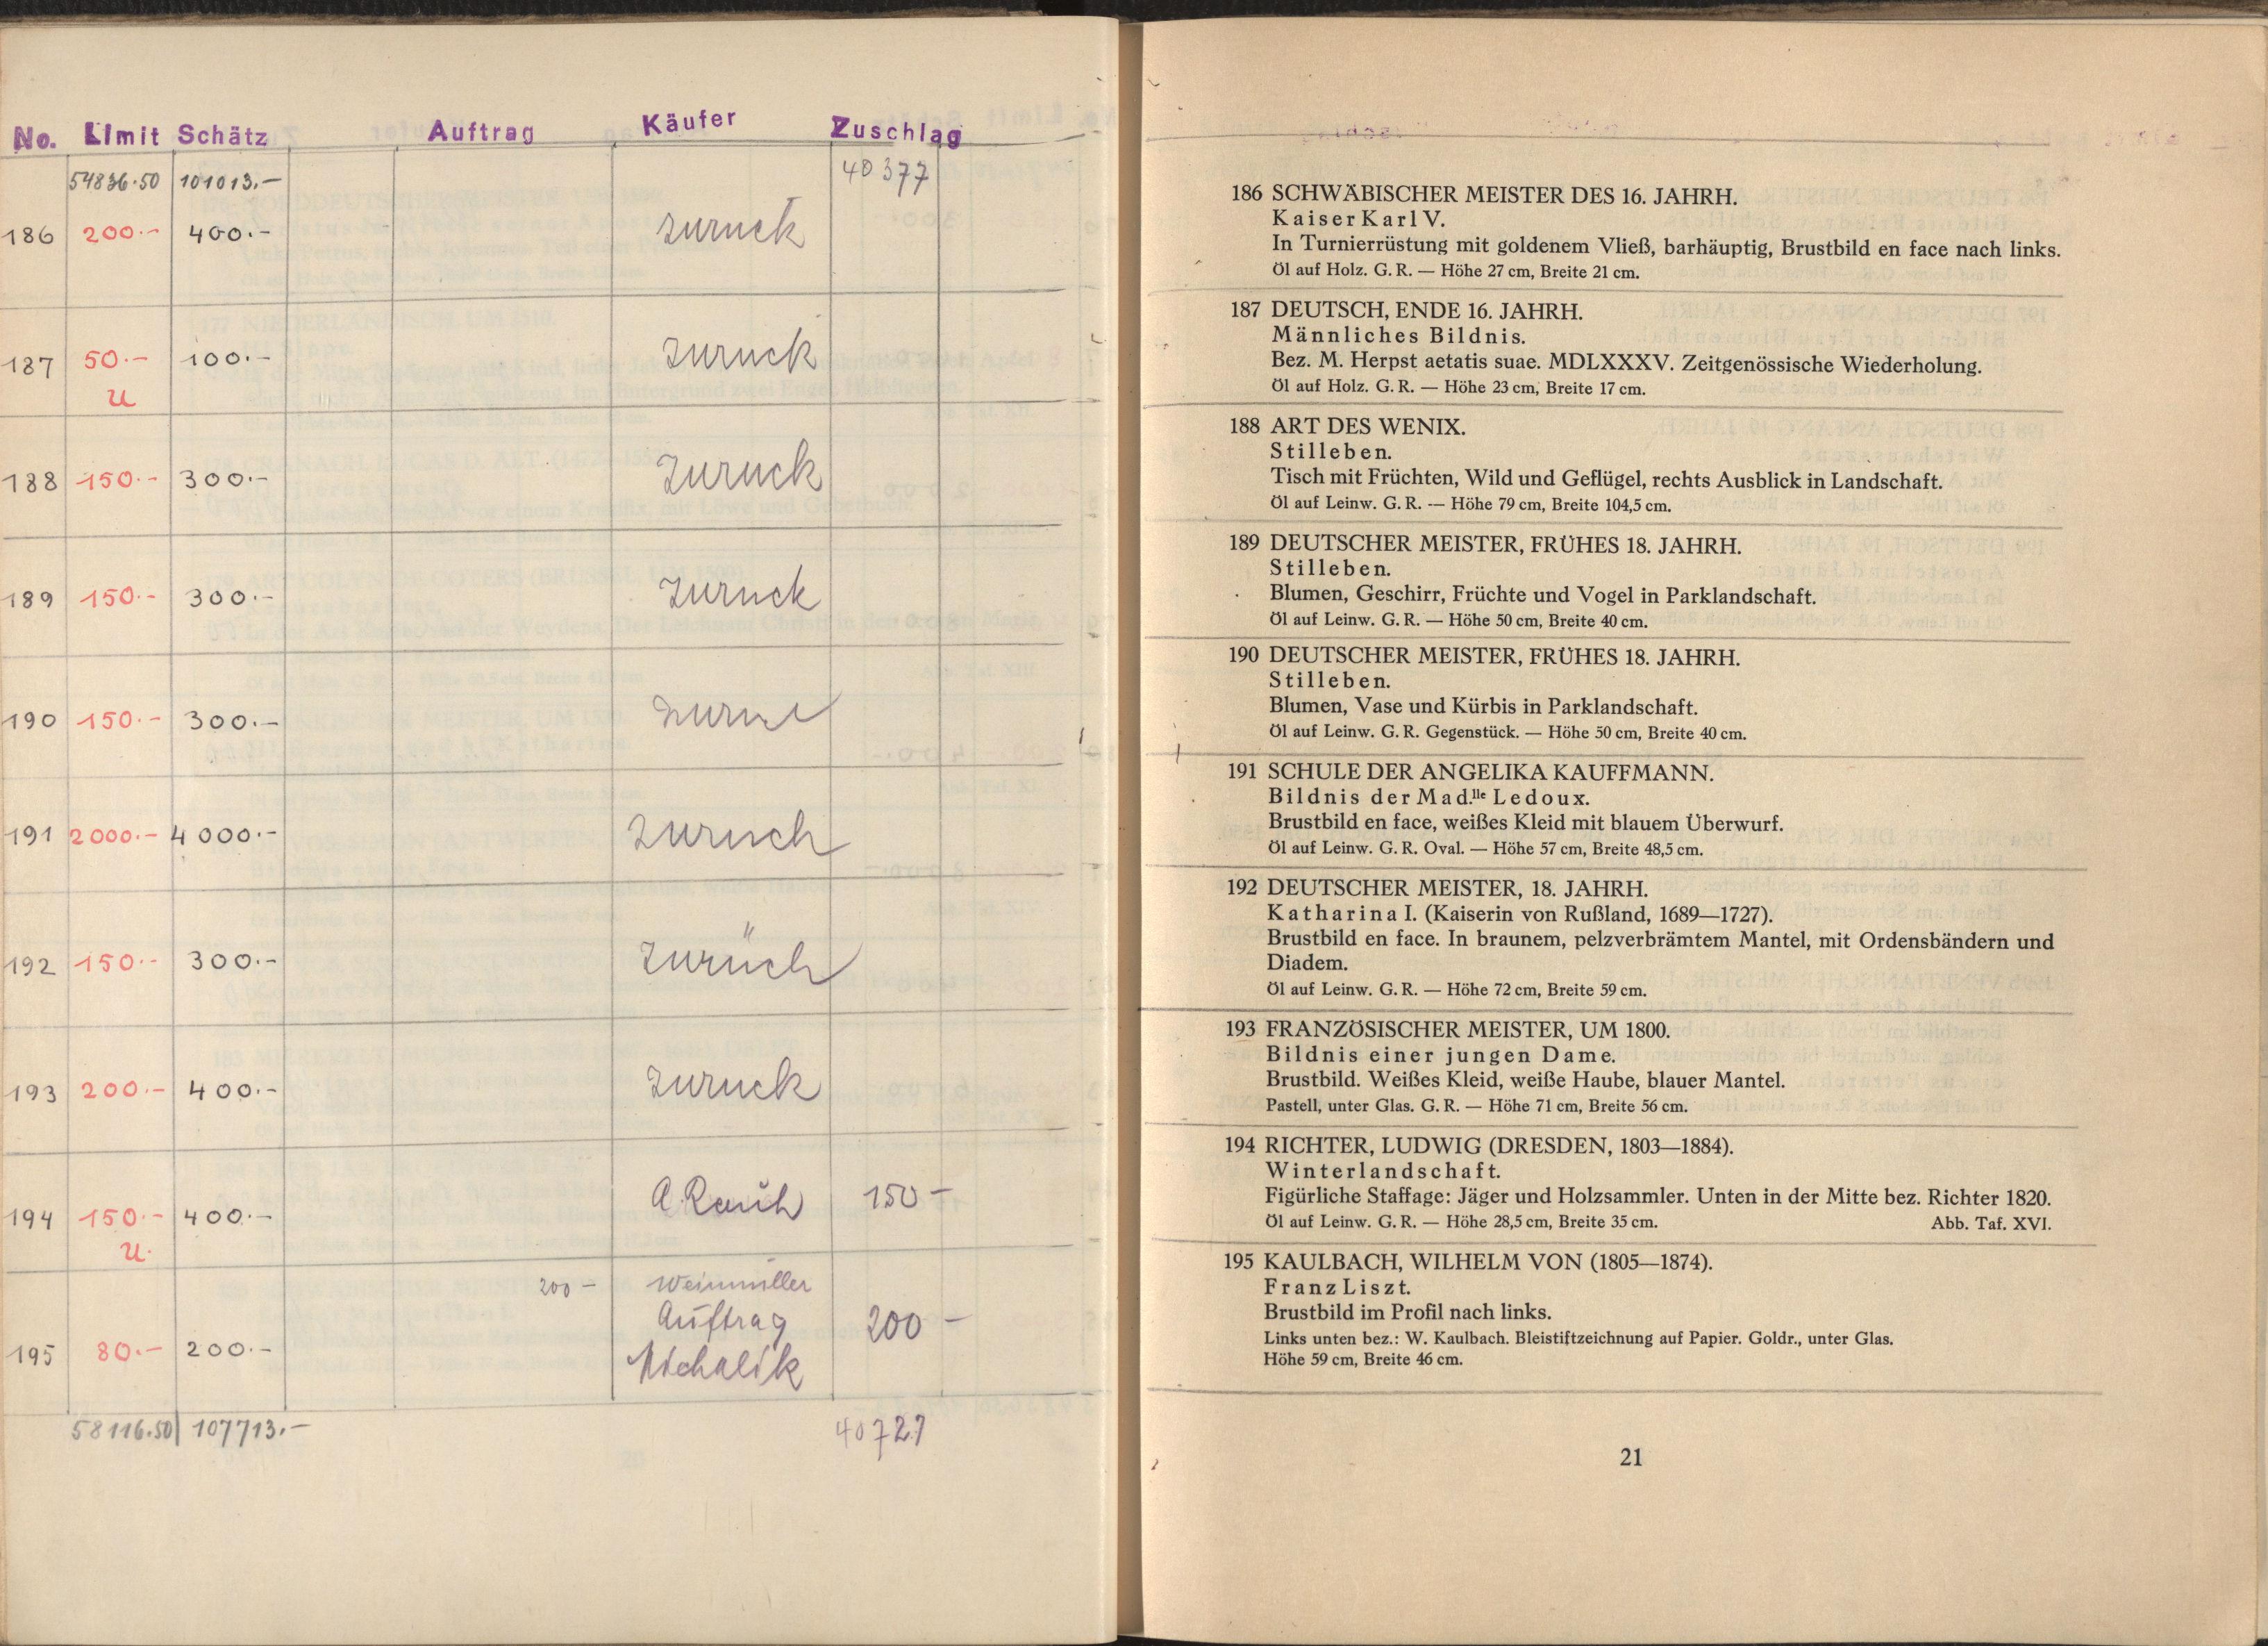 No. Limit Schätz Auftrag Käufer Zuschlag
54836.50 101013.- 40377
186 200.- 400.- zurück
187 50.- 100.- zurück
u
188 150.- 300.- zurück
189 150.- 300.- zurück
190 150.- 300.-
191 2000.- 4000.- zurück
192 150.- 300.- zurück
193 200.- 400.- zurück
194 150.- 400.- A. Rauh 150 -
u.
200 - Weinmüller
Auftrag
195 80.- 200.- Michalik 200 -
58116.50 107713.- 40727
186 SCHWÄBISCHER MEISTER DES 16. JAHRH.
Kaiser Karl V.
In Turnierrüstung mit goldenem Vließ, barhäuptig, Brustbild en face nach links.
Öl auf Holz. G. R. — Höhe 27 cm, Breite 21 cm.
187 DEUTSCH, ENDE 16. JAHRH.
Männliches Bildnis.
Bez. M. Herpst aetatis suae. MDLXXXV. Zeitgenössische Wiederholung.
Öl auf Holz. G. R. — Höhe 23 cm, Breite 17 cm.
188 ART DES WENIX.
Stilleben.
Tisch mit Früchten, Wild und Geflügel, rechts Ausblick in Landschaft.
Öl auf Leinw. G. R. — Höhe 79 cm, Breite 104,5 cm.
189 DEUTSCHER MEISTER, FRÜHES 18. JAHRH.
Stilleben.
Blumen, Geschirr, Früchte und Vogel in Parklandschaft.
Öl auf Leinw. G. R. — Höhe 50 cm, Breite 40 cm.
190 DEUTSCHER MEISTER, FRÜHES 18. JAHRH.
Stilleben.
Blumen, Vase und Kürbis in Parklandschaft.
Öl auf Leinw. G. R. Gegenstück. — Höhe 50 cm, Breite 40 cm.
191 SCHULE DER ANGELIKA KAUFFMANN.
Bildnis der Mad.lle Ledoux.
Brustbild en face, weißes Kleid mit blauem Überwurf.
Öl auf Leinw. G. R. Oval. — Höhe 57 cm, Breite 48,5 cm.
192 DEUTSCHER MEISTER, 18. JAHRH.
Katharina I. (Kaiserin von Rußland, 1689—1727).
Brustbild en face. In braunem, pelzverbrämtem Mantel, mit Ordensbändern und
Diadem.
Öl auf Leinw. G. R. — Höhe 72 cm, Breite 59 cm.
193 FRANZÖSISCHER MEISTER, UM 1800.
Bildnis einer jungen Dame.
Brustbild. Weißes Kleid, weiße Haube, blauer Mantel.
Pastell, unter Glas. G. R. — Höhe 71 cm, Breite 56 cm.
194 RICHTER, LUDWIG (DRESDEN, 1803—1884).
Winterlandschaft.
Figürliche Staffage: Jäger und Holzsammler. Unten in der Mitte bez. Richter 1820.
Öl auf Leinw. G. R. — Höhe 28,5 cm, Breite 35 cm. Abb. Taf. XVI.
195 KAULBACH, WILHELM VON (1805—1874).
Franz Liszt.
Brustbild im Profil nach links.
Links unten bez.: W. Kaulbach. Bleistiftzeichnung auf Papier. Goldr., unter Glas.
Höhe 59 cm, Breite 46 cm.
21